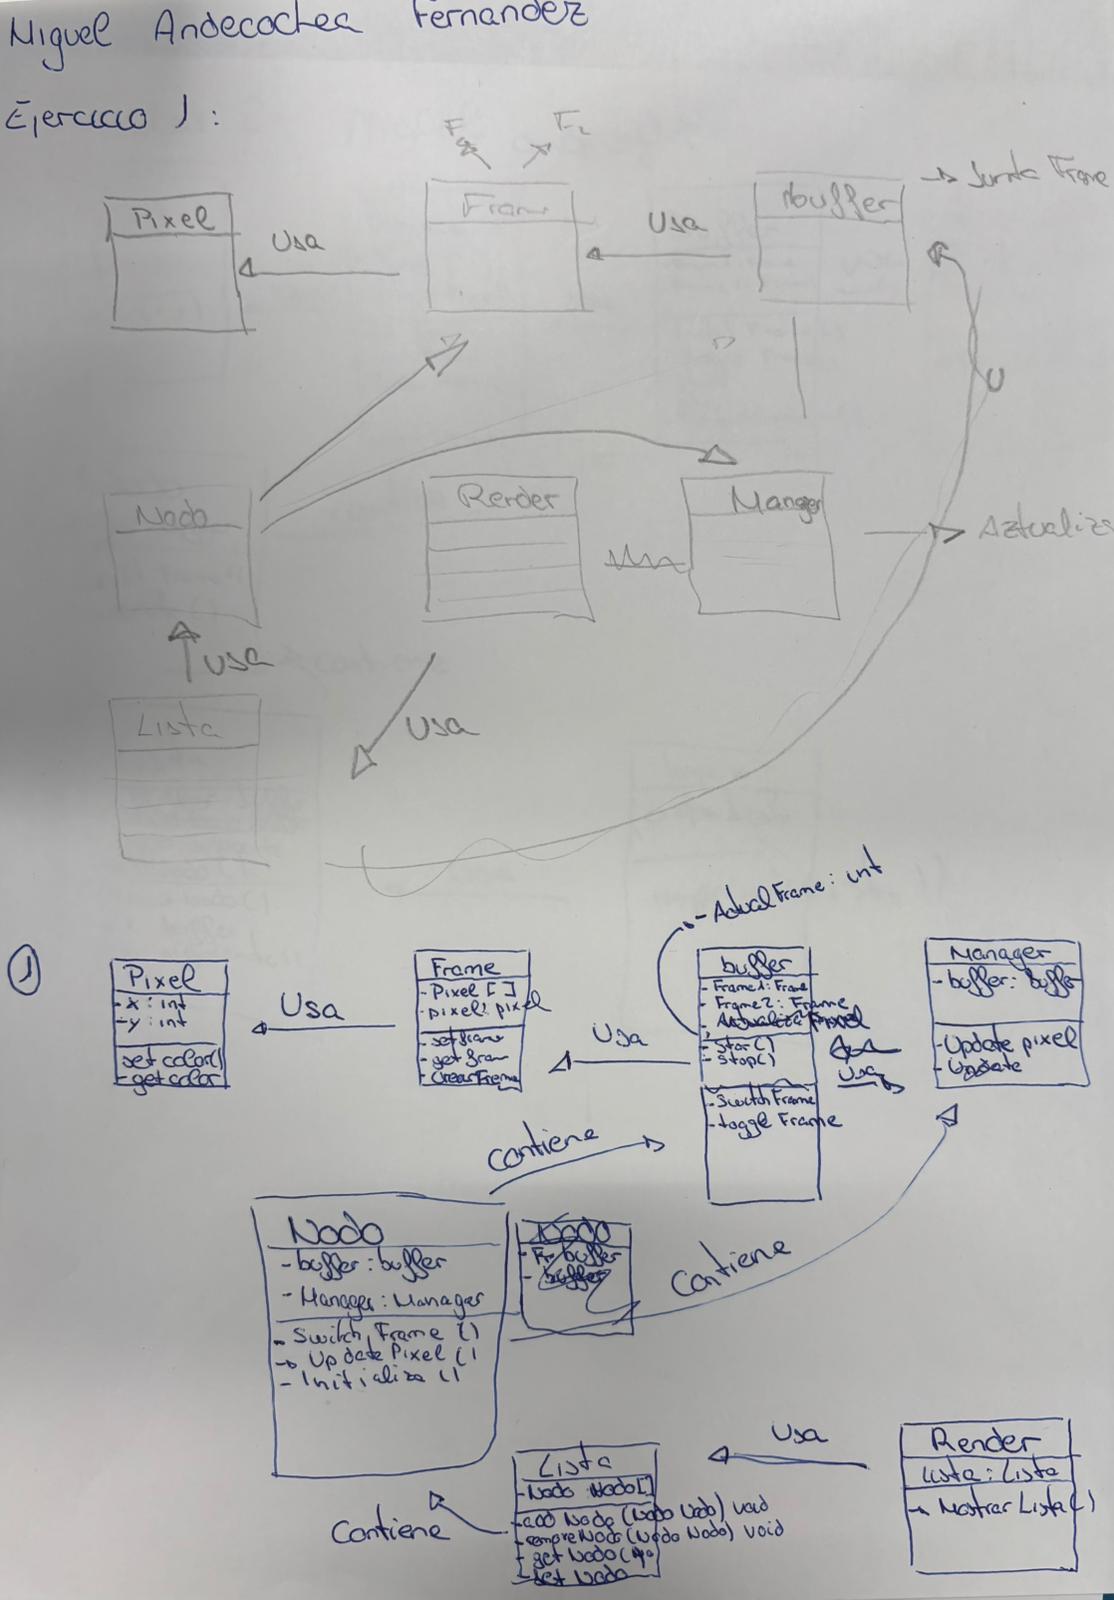 Miguel Andecochea Fernandez
Ejercicio 1:
F
F2
Pixel
Usa
Frame
Usa
buffer
→ Junta Frame
U
Nodo
Render
Manger
Aztualiza
Usa
Lista
Usa
①
- Actual Frame: int
Pixel
- x : int
- y : int
set color()
- get color
Usa
Frame
- Pixel []
- pixel: pixel
- set fram
- get fram
- Crear Frame
Usa
buffer
- Frame1: Frame
- Frame2: Frame
- star()
- stop()
- Switch Frame
- toggle Frame
Usa
Manager
- buffer: buffer
- Update pixel
- Update
Contiene
Nodo
- buffer: buffer
- Manager: Manager
- Switch Frame ()
→ Update Pixel ()
- Initialize ()
Nodo
buffer
- buffer
Contiene
Contiene
Lista
- Nodo Nodo[]
- add Nodo (Nodo Nodo) void
- (Nodo Nodo) void
- get Nodo(
- set Nodo
Usa
Render
Lista: Lista
→ Mostrar Lista()